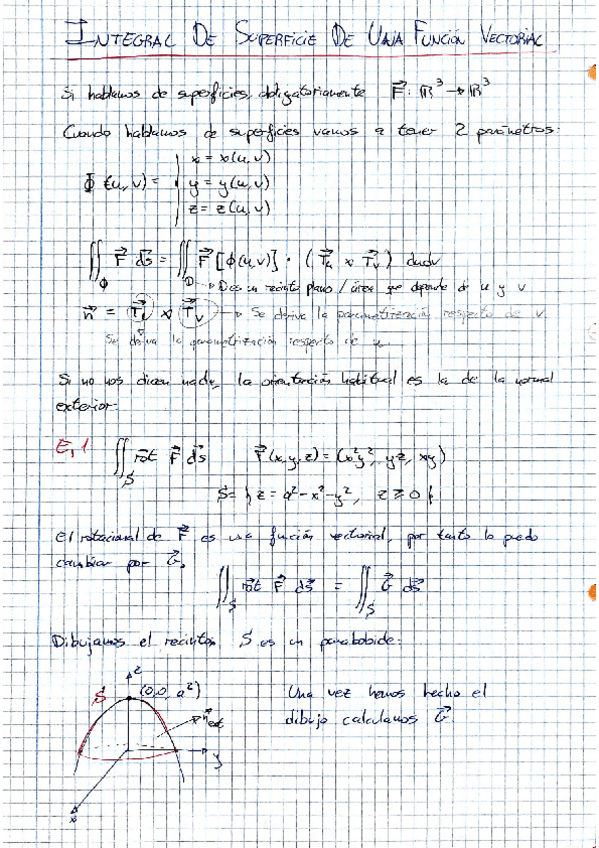 INTEGRAL DE SUPERFICIE DE UNA FUNCIÓN VECTORIAL
Si hablamos de superficies, obligatoriamente F⃗: ℝ³ → ℝ³
Cuando hablamos de superficies vamos a tener 2 parámetros:
x = x(u,v)
Φ(u,v) = y = y(u,v)
z = z(u,v)
∬_Φ F⃗ ds⃗ = ∬_D F⃗[Φ(u,v)] · (T⃗u × T⃗v) dudv
→ D es un recinto plano / área que depende de u y v
n⃗ = T⃗u × T⃗v → Se deriva la parametrización respecto de v.
Se deriva la parametrización respecto de u.
Si no nos dicen nada, la orientación habitual es la de la normal
exterior.
Ej 1 ∬_S rot F⃗ ds⃗ F⃗(x,y,z) = (x²y², yz, xy)
S = { z = a² - x² - y², z ≥ 0 }
el rotacional de F⃗ es una función vectorial, por tanto lo puedo
cambiar por G⃗,
∬_S rot F⃗ ds⃗ = ∬_S G⃗ ds⃗
Dibujamos el recinto, S es un paraboloide:
z
S (0,0,a²) Una vez hemos hecho el
n⃗ext dibujo calculamos G⃗.
y
x